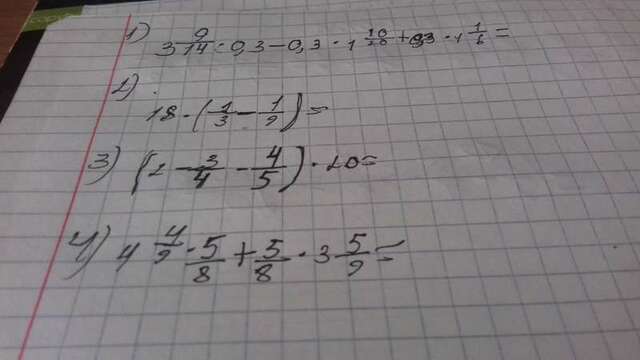 1) 3 9/14 · 0,3 - 0,3 · 1 10/28 + 0,3 · 1 1/6 =
2) 18 · (1/3 - 1/9) =
3) (2 - 3/4 - 4/5) · 20 =
4) 4 4/9 · 5/8 + 5/8 · 3 5/9 =